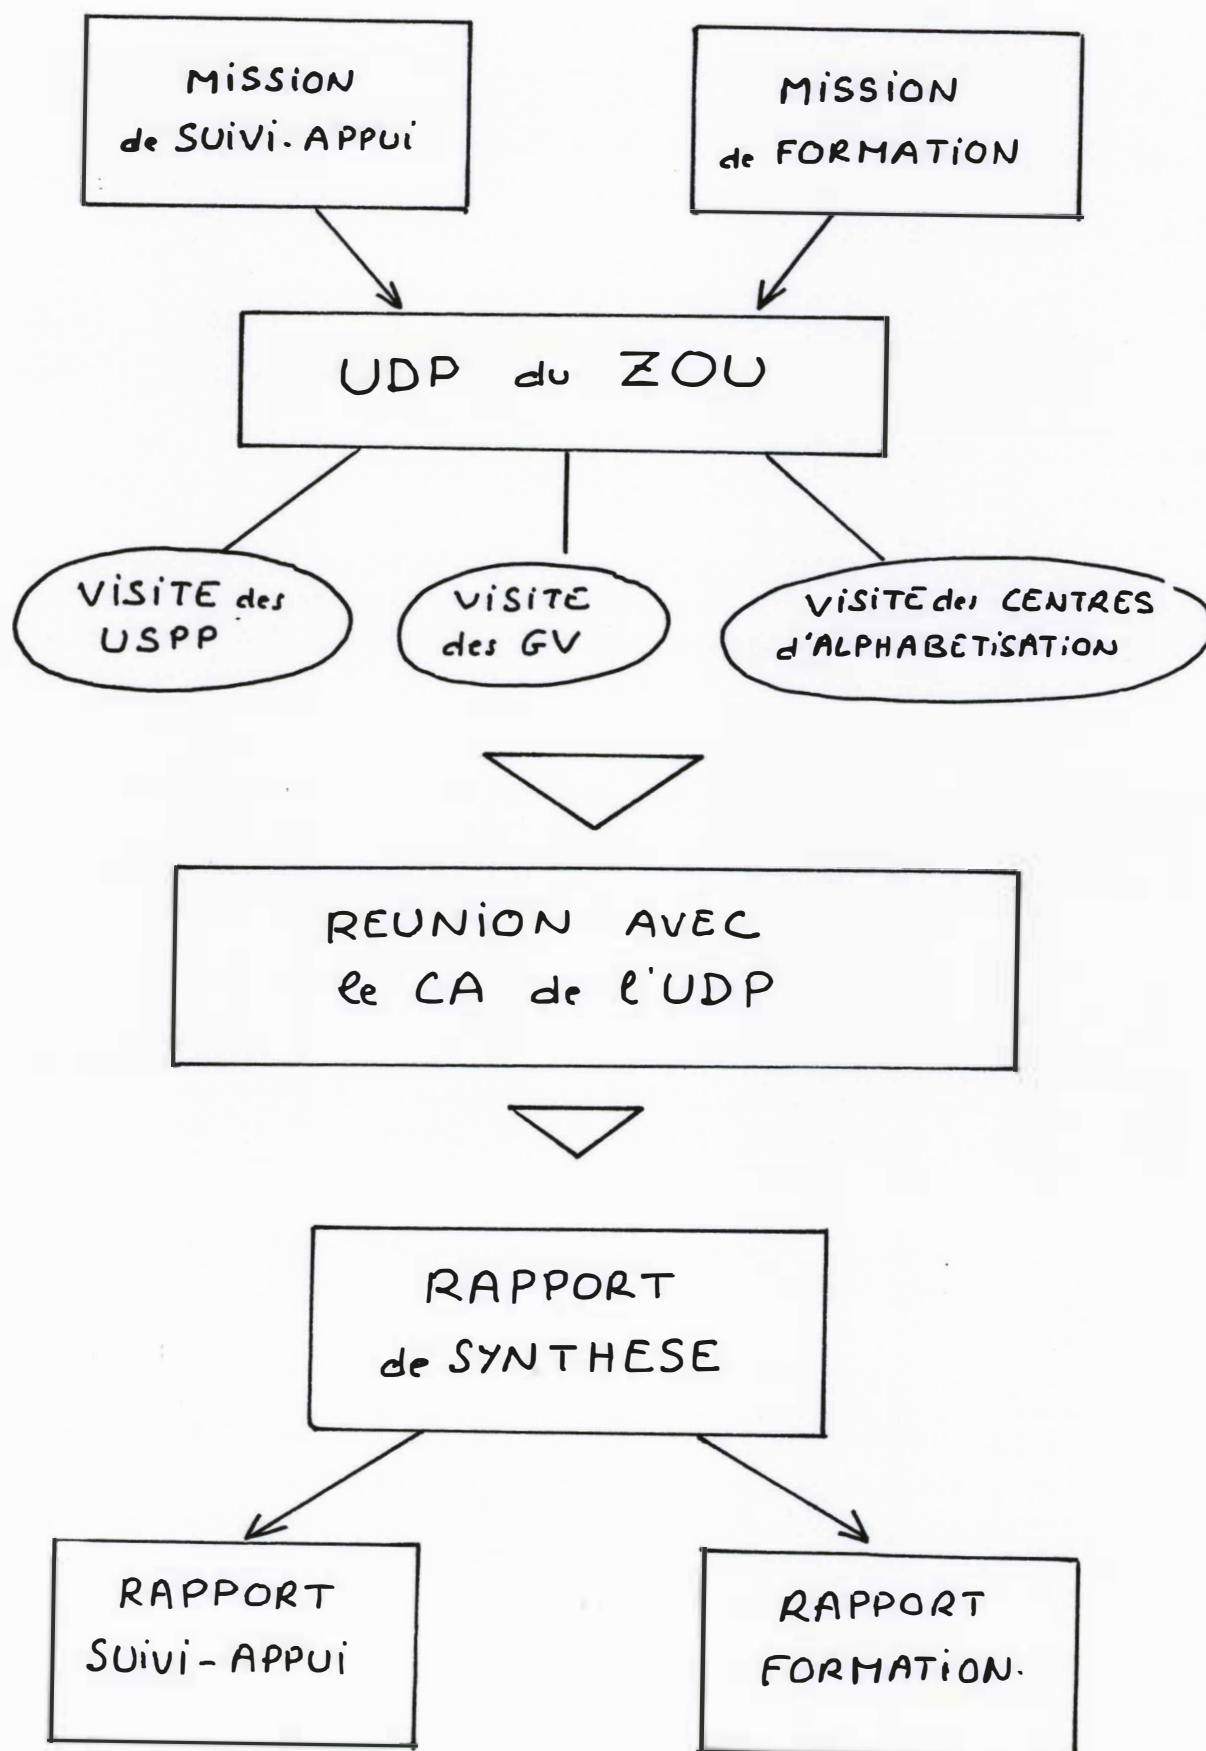 MISSION
de SUIVI-APPUI
MISSION
de FORMATION
UDP du ZOU
VISITE des
USPP
VISITE
des GV
VISITE des CENTRES
d'ALPHABETISATION
REUNION AVEC
le CA de l'UDP
RAPPORT
de SYNTHESE
RAPPORT
SUIVI-APPUI
RAPPORT
FORMATION.